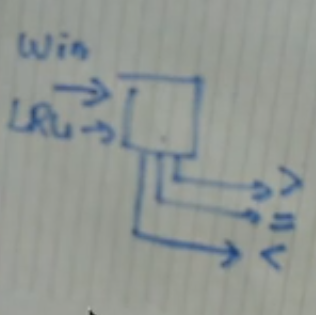 Win
LRU
>
=
<